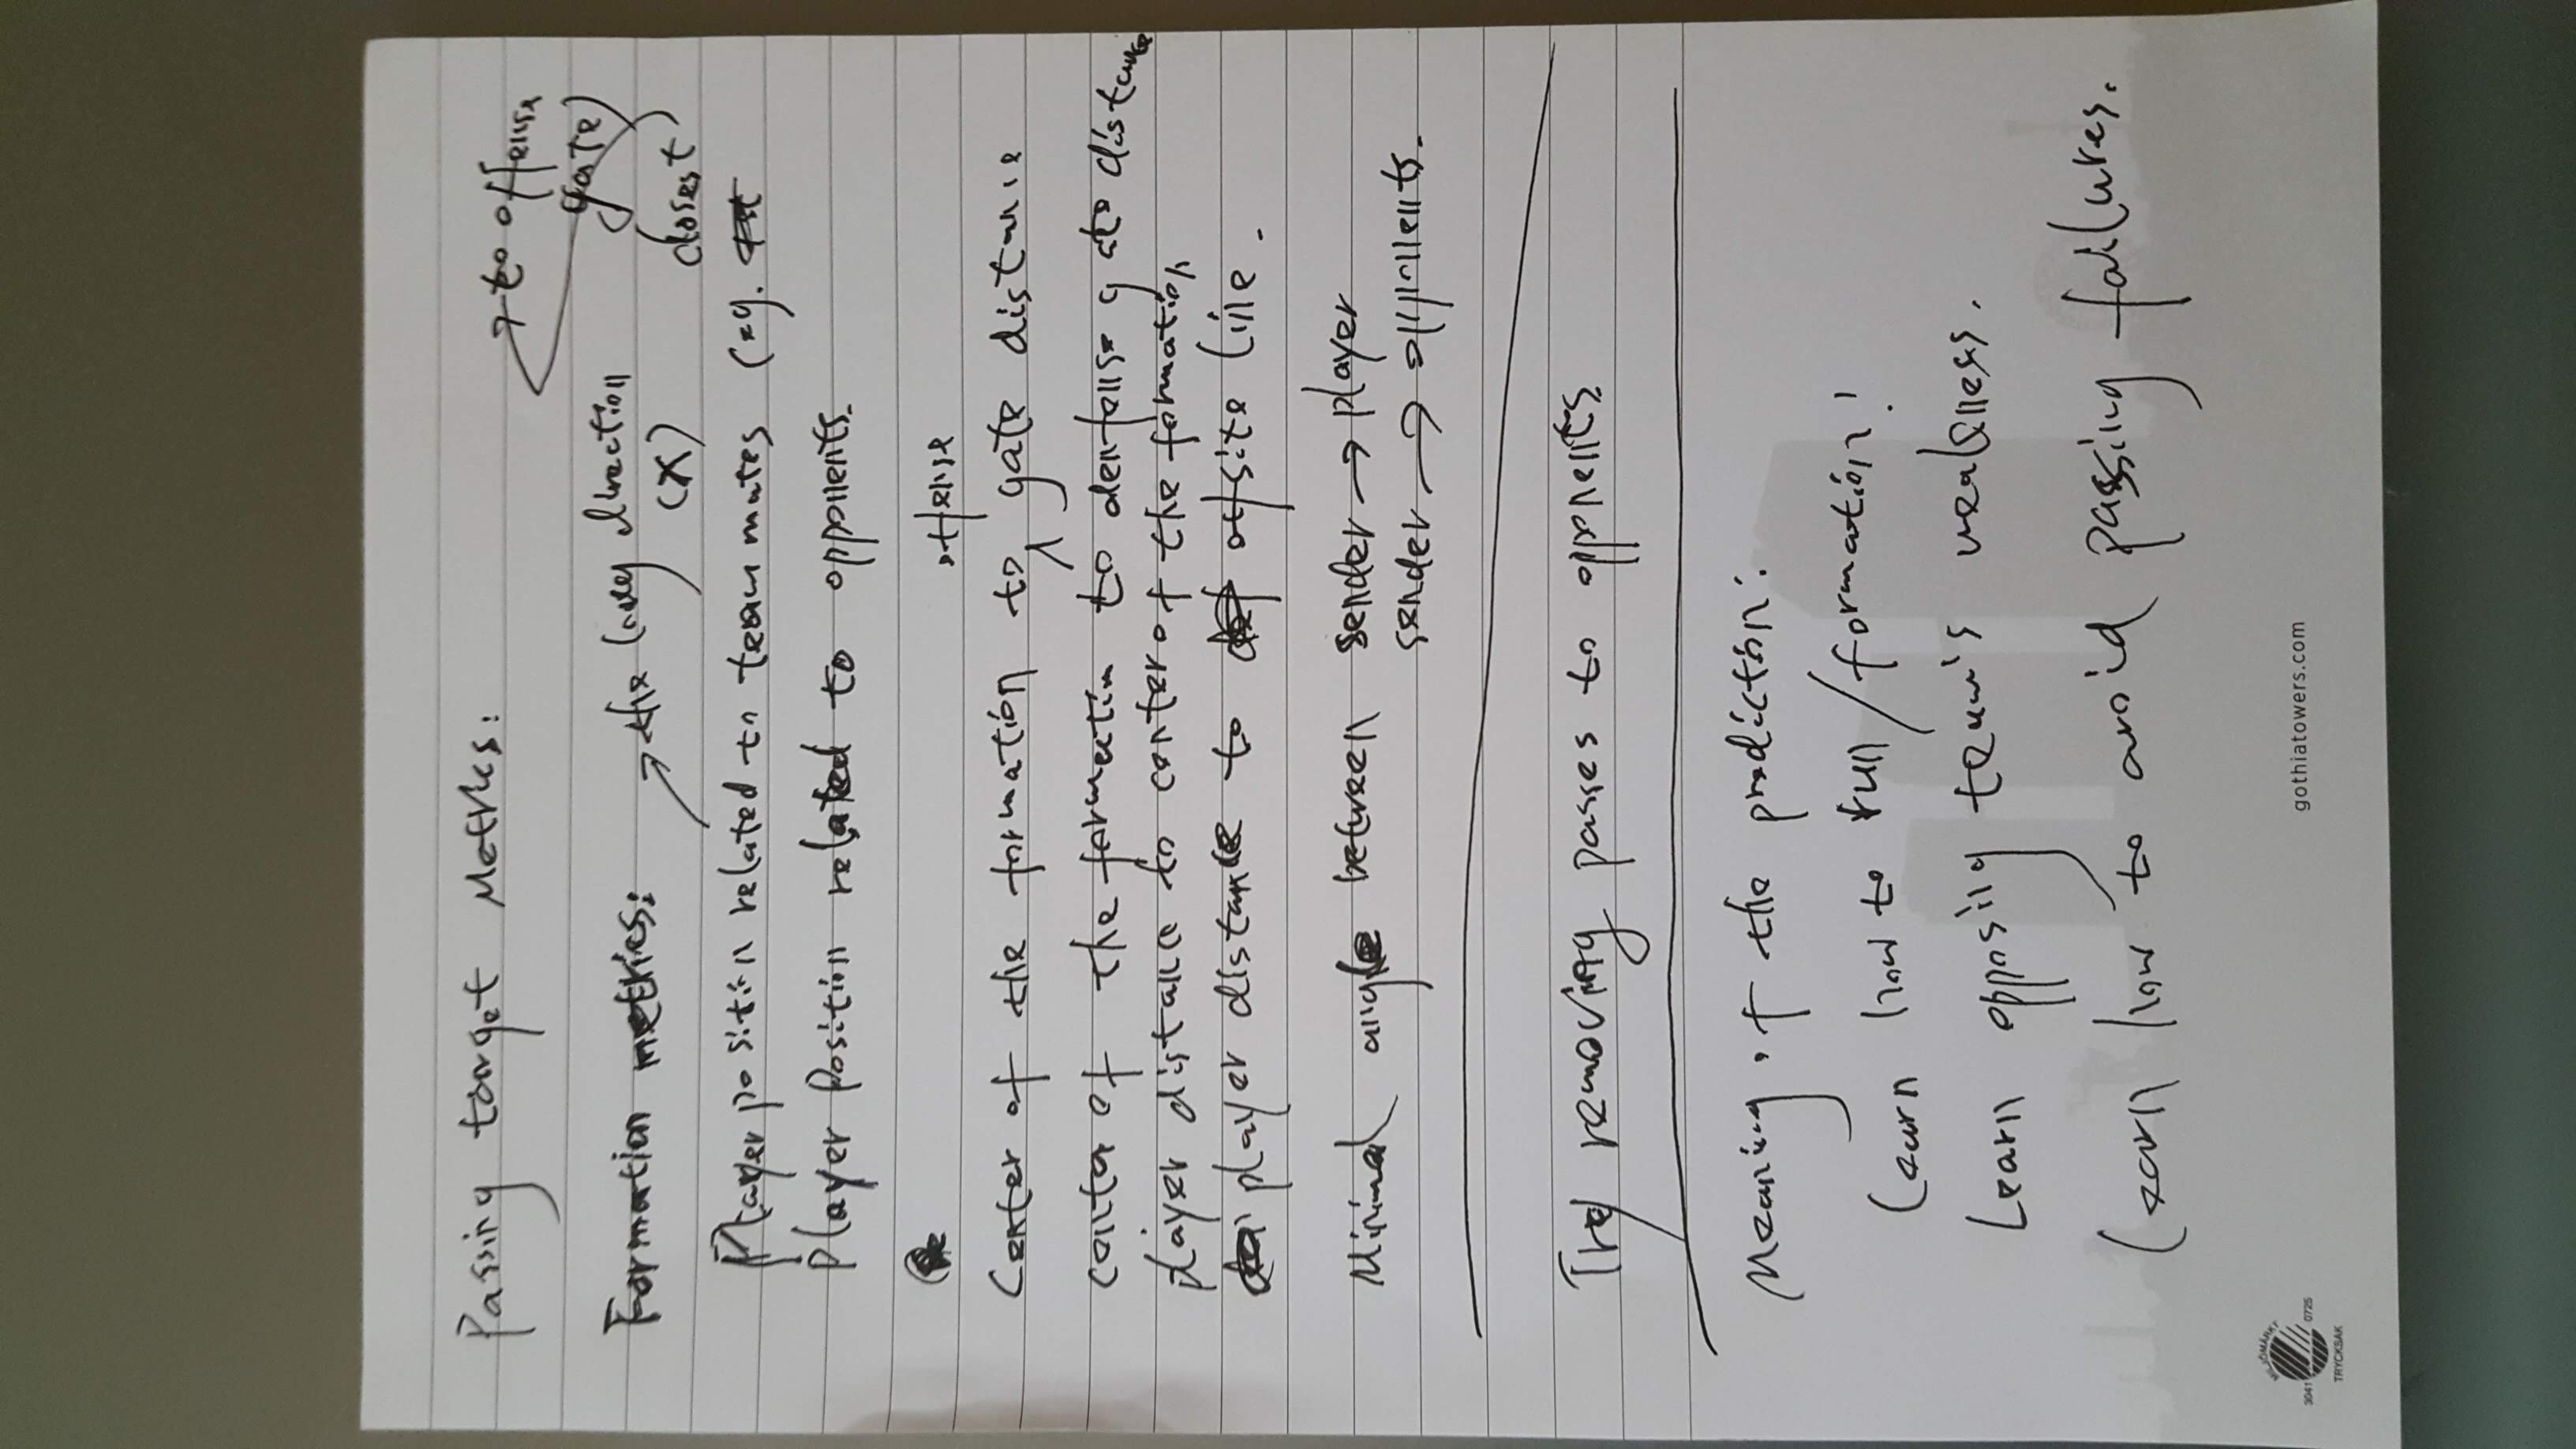 Passing target Metrics:
→ to offense
gate)
Formation metrics:
→ the long direction
(x)
closest
Player position related to team mates (eg.
Player Position related to opponents.
offense
Center of the formation to gate distance
center of the formation to denfense gate distance
player distance to center of the formation
player distance to offsite line.
Minimal angle between sender → player
sender → opponents.
Try removing passes to opponents
Meaning of the prediction:
Learn how to run/formation!
Learn opposing team's weakness.
Learn how to avoid passing failures.
MILJÖMÄRKT
3041 0725
TRYCKSAK
gothiatowers.com